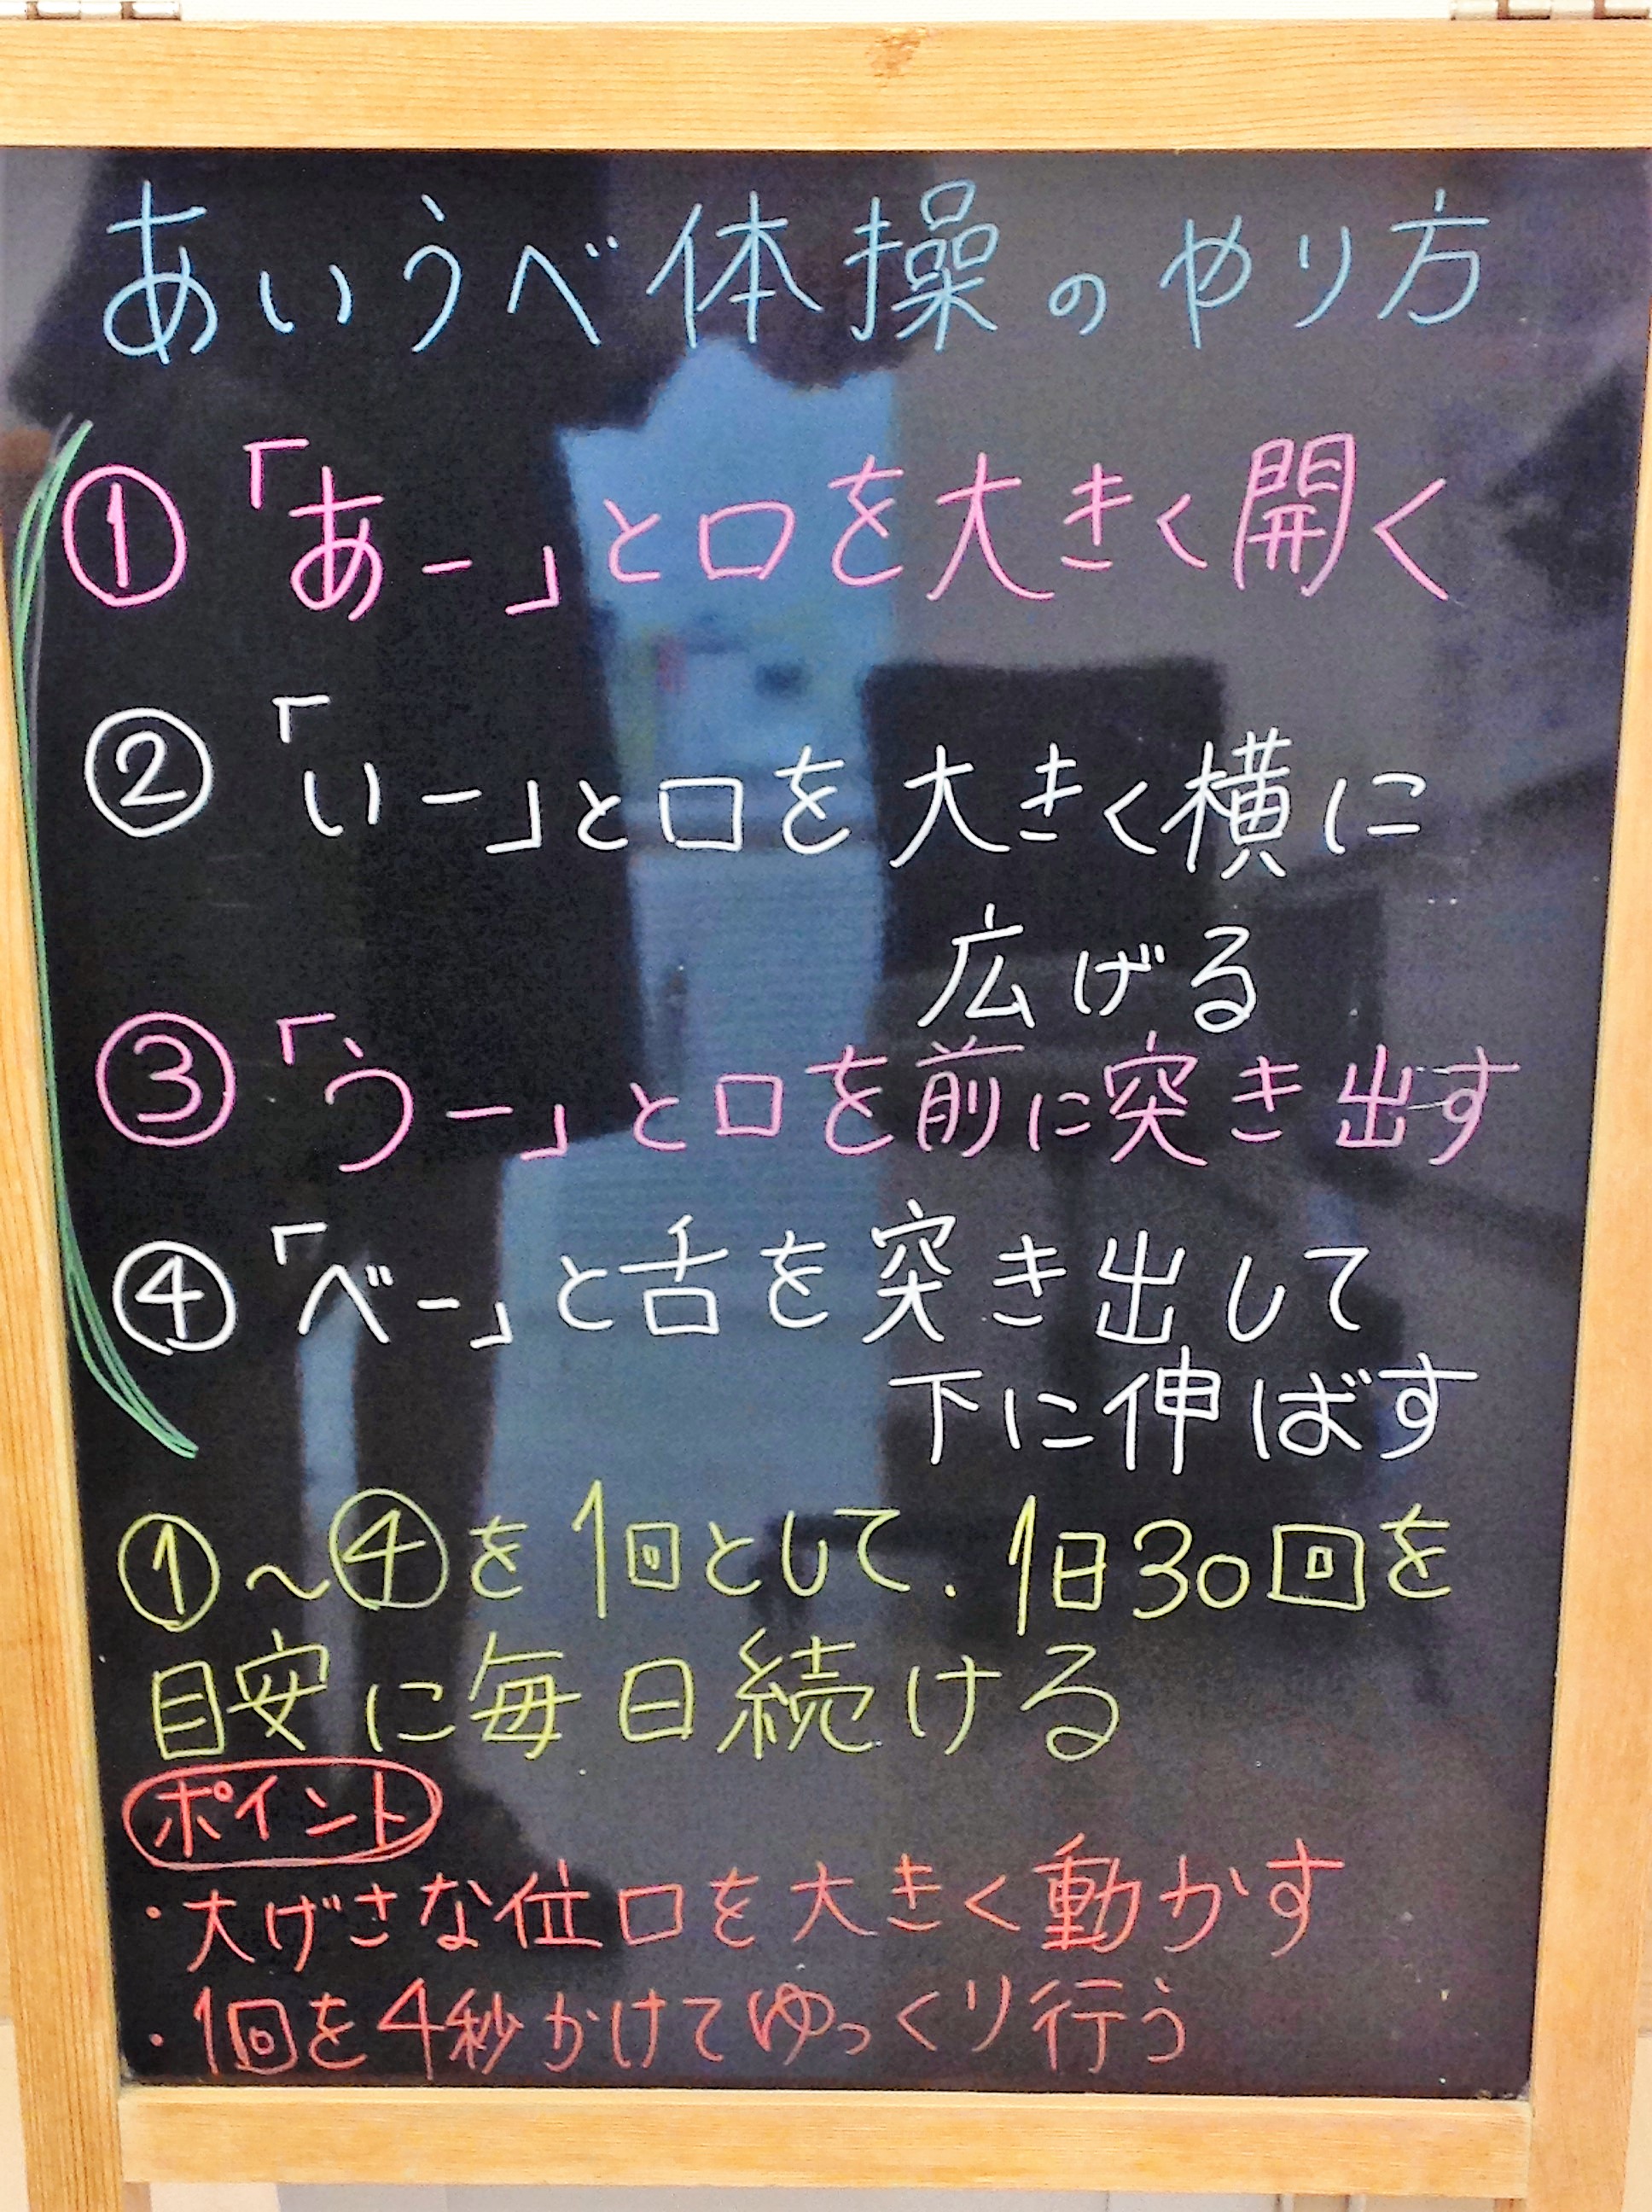 あいうべ体操のやり方
①「あー」と口を大きく開く
②「いー」と口を大きく横に
広げる
③「うー」と口を前に突き出す
④「べー」と舌を突き出して
下に伸ばす
①～④を1回として、1日30回を
目安に毎日続ける
ポイント
・大げさな位口を大きく動かす
・1回を4秒かけてゆっくり行う